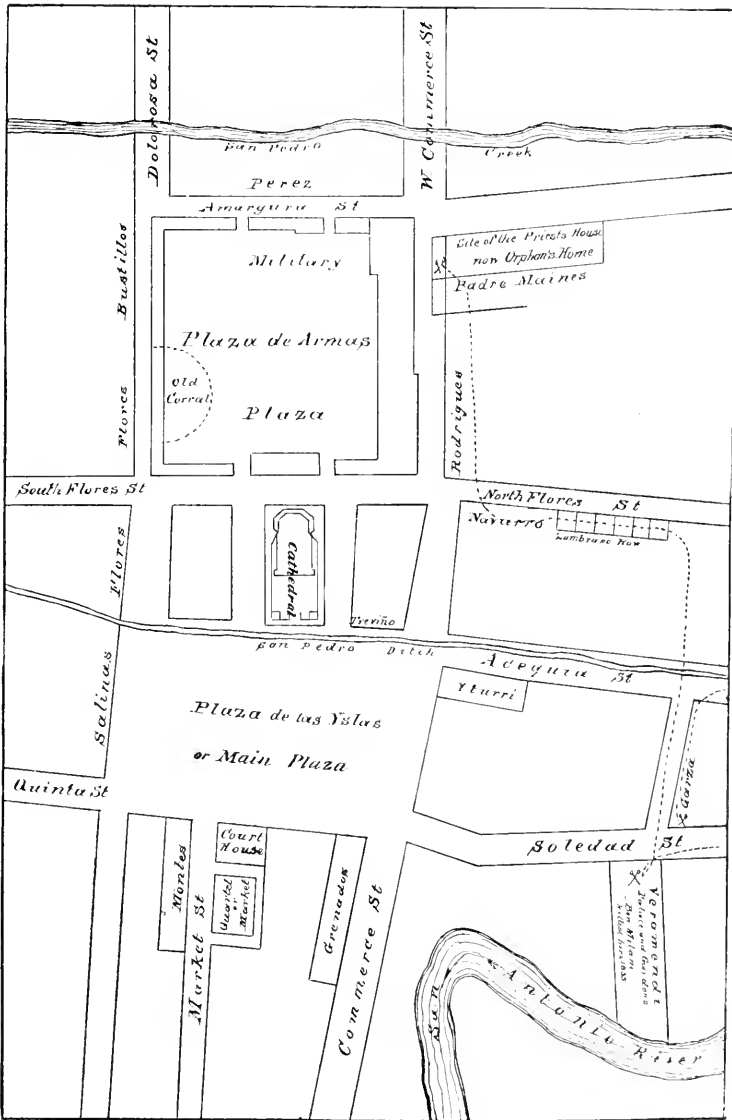 Dolorosa St
W Commerce St
San Pedro Creek
Perez
Amargura St
Bustillos
Military
Site of the Priests House
now Orphan's Home
Padre Maines
Plaza de Armas
Old
Corral
Plaza
Flores
Rodrigues
South Flores St
North Flores St
Navarro
Zambrano Row
Flores
Cathedral
Treviño
San Pedro Ditch
Acequia St
Yturri
Salinas
Plaza de las Yslas
or Main Plaza
Garza
Quinta St
Soledad St
Court
House
Montes
Quartel
or
Market
Market St
Grenados
Commerce St
Veramendi
Palace and Gardens
Ben Milam
killed here 1835
San Antonio River